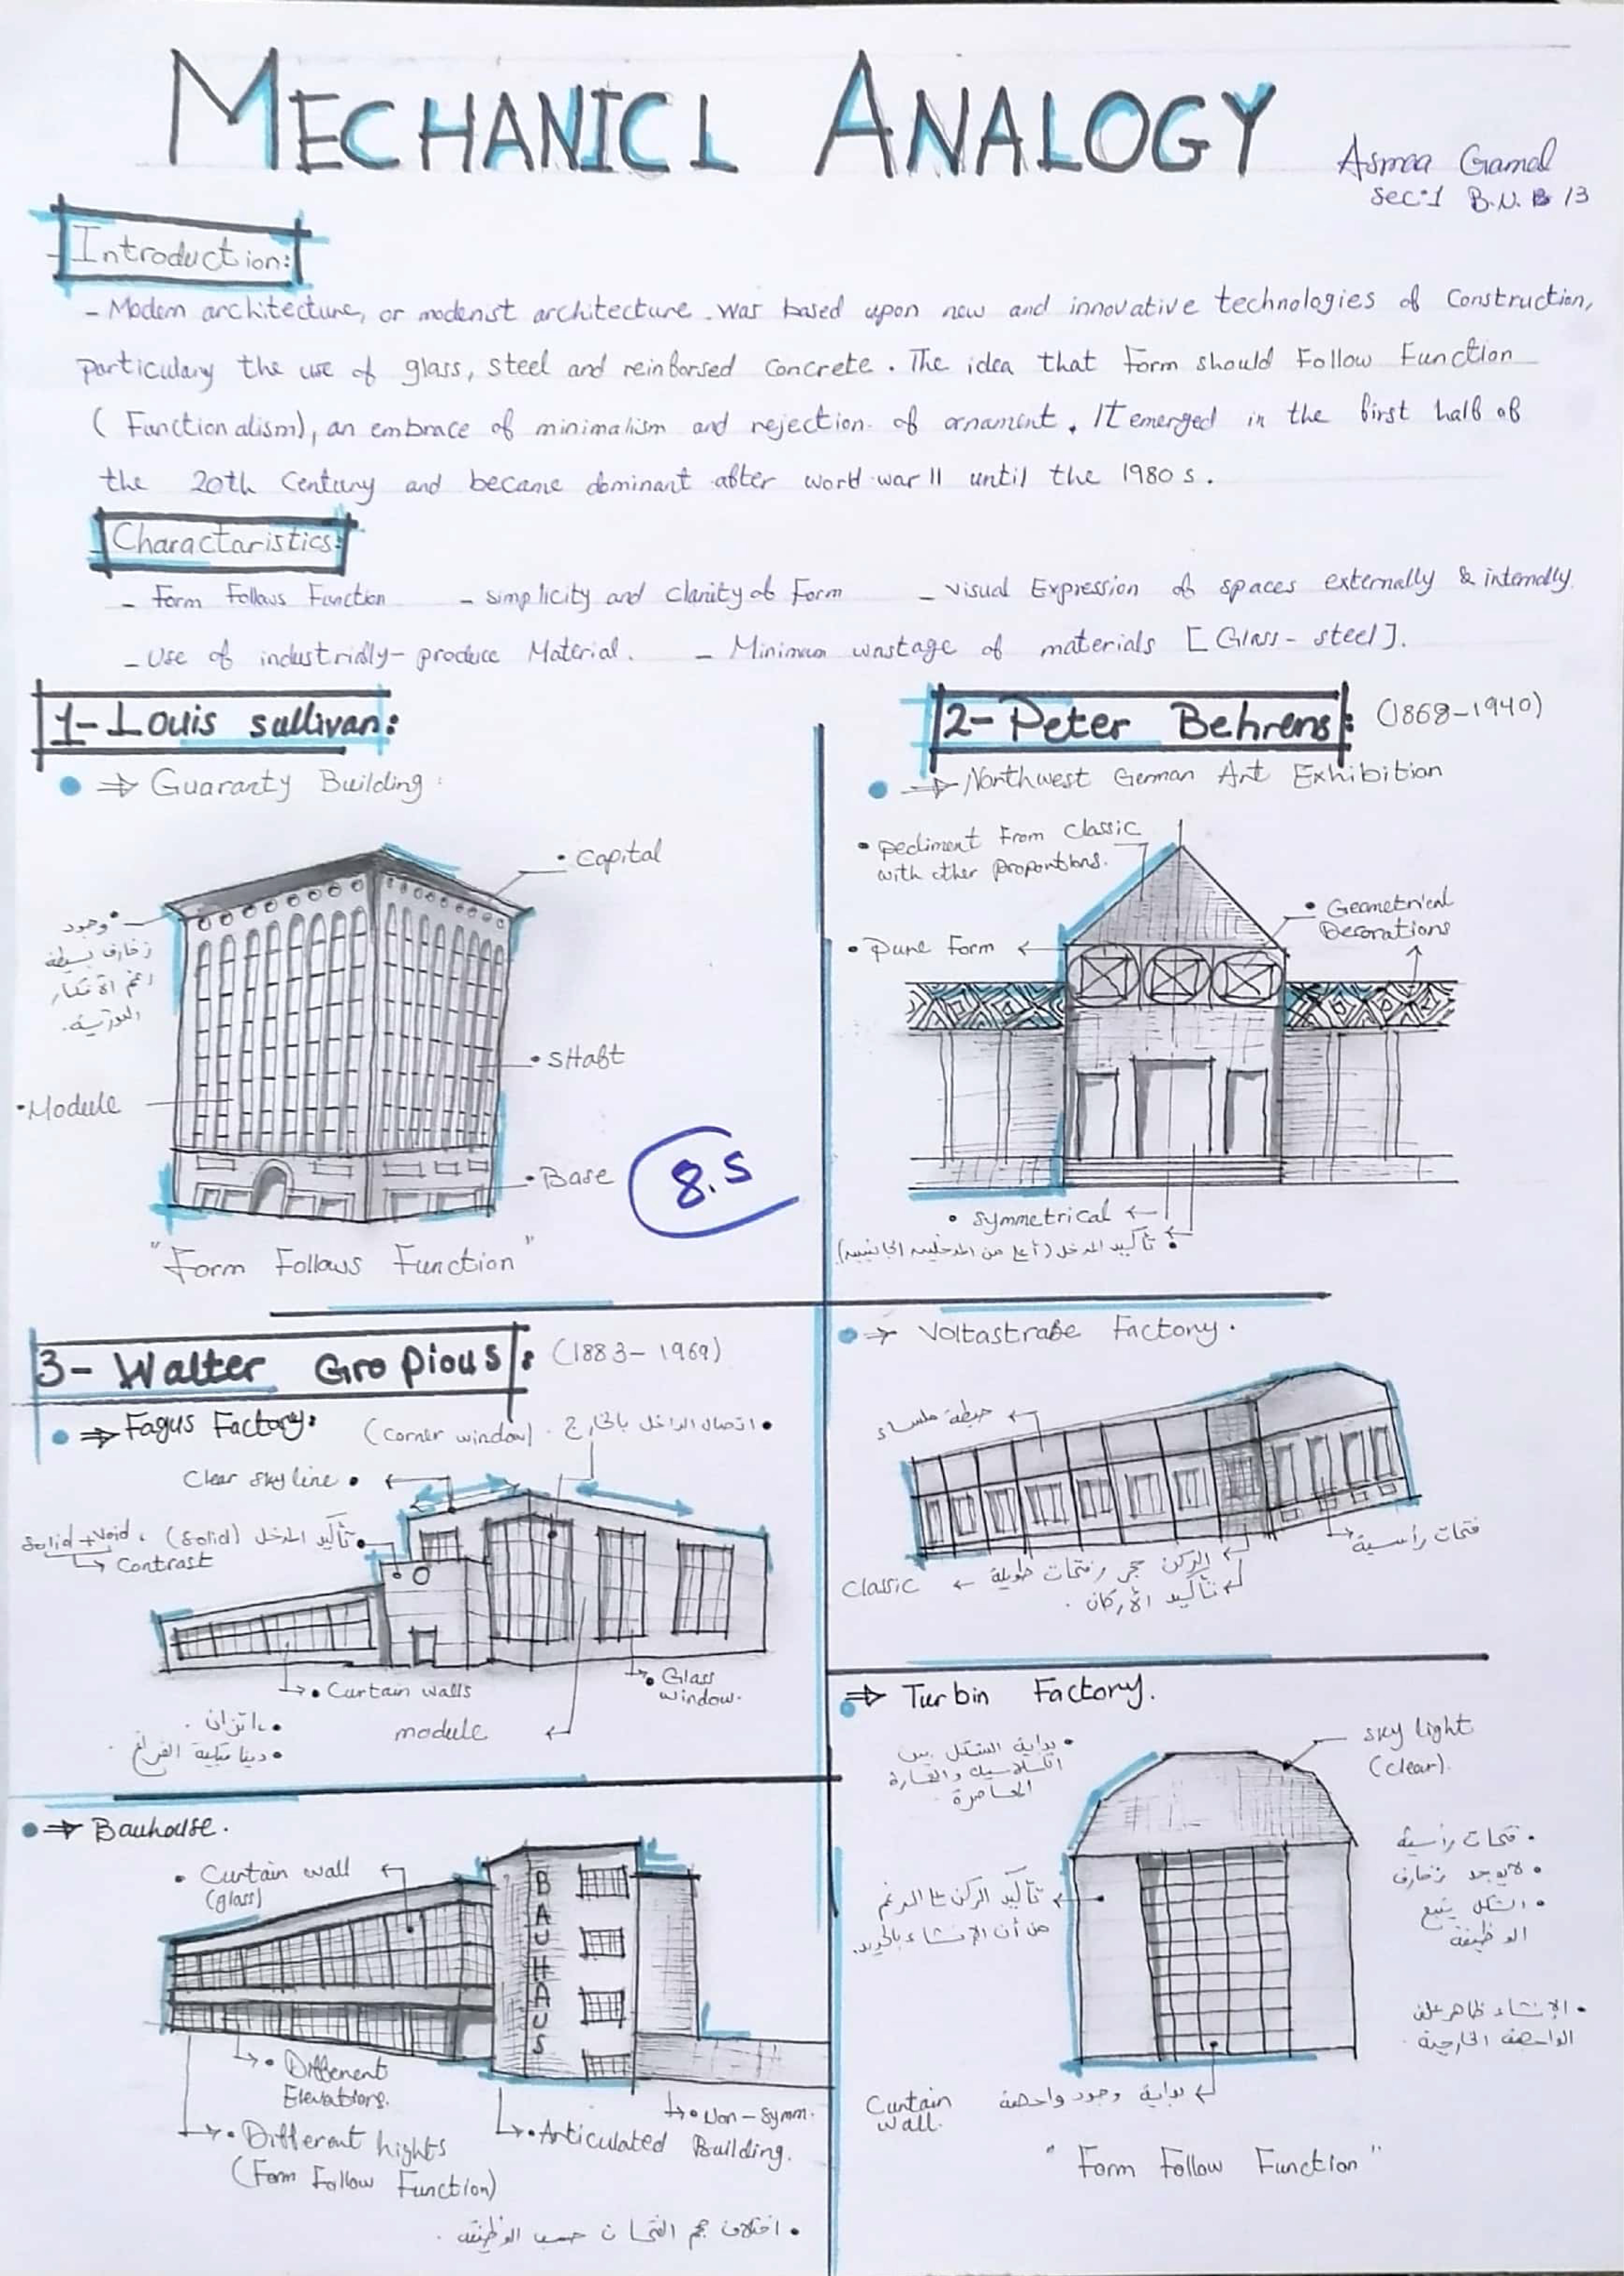 MECHANICL ANALOGY
Asmaa Gamal
Sec:1 B.N. B 13
Introduction:
- Modern architecture, or modenist architecture was based upon new and innovative technologies of construction,
particulary the use of glass, steel and reinforsed concrete. The idea that Form should Follow Function
(Functionalism), an embrace of minimalism and rejection of ornament. IT emerged in the first half of
the 20th Century and became dominant after world war II until the 1980s.
Charactaristics:
- Form Follows Function - simplicity and clarity of Form - visual Expression of spaces externally & internally.
- Use of industrially-produce Material. - Minimum wastage of materials [Glass-steel].
1- Louis sullivan:
⇒ Guaranty Building:
• Capital
• وجود
زخارف بسيطة
رغم
• SHaft
• Module
• Base
8.5
"Form Follows Function"
2- Peter Behrens: (1868-1940)
⇒ Northwest German Art Exhibition
• pediment From classic
with other proportions.
• Geometrical
Decorations
• Pure Form
• symmetrical
• تأكيد المدخل (أعلى من المدخلين الجانبيين)
⇒ Voltastraße Factory.
حيطة ملساء
فتحات رأسية
Classic ← الركن حجر وفتحات طويلة
تأكيد الأركان.
⇒ Turbin Factory.
sky light
(clear).
• بداية الشكل بين
الكلاسيك والعمارة
المعاصرة
• فتحات رأسية
• لا يوجد زخارف
• الشكل يتبع
الوظيفة
تأكيد الركن على الرغم
من أن الإنشاء بالحديد.
• الإنشاء ظاهر على
الواجهة الخارجية.
بداية وجود واجهة
Curtain
wall.
"Form Follow Function"
3- Walter Gropious: (1883-1969)
⇒ Fagus Factory:
• اتصال الداخل بالخارج. (corner window)
Clear sky line •
• تأكيد المدخل (Solid)، Solid + Void
Contrast
• Curtain walls
• Glass
window.
module
• اتزان.
• ديناميكية الفراغ.
⇒ Bauhouse.
• Curtain wall
(glass)
BAUHAUS
• Different
Elevations.
• Different hights
(Form Follow Function)
• Articulated Building.
• Non-Symm.
• اختلاف حجم الفتحات حسب الوظيفة.